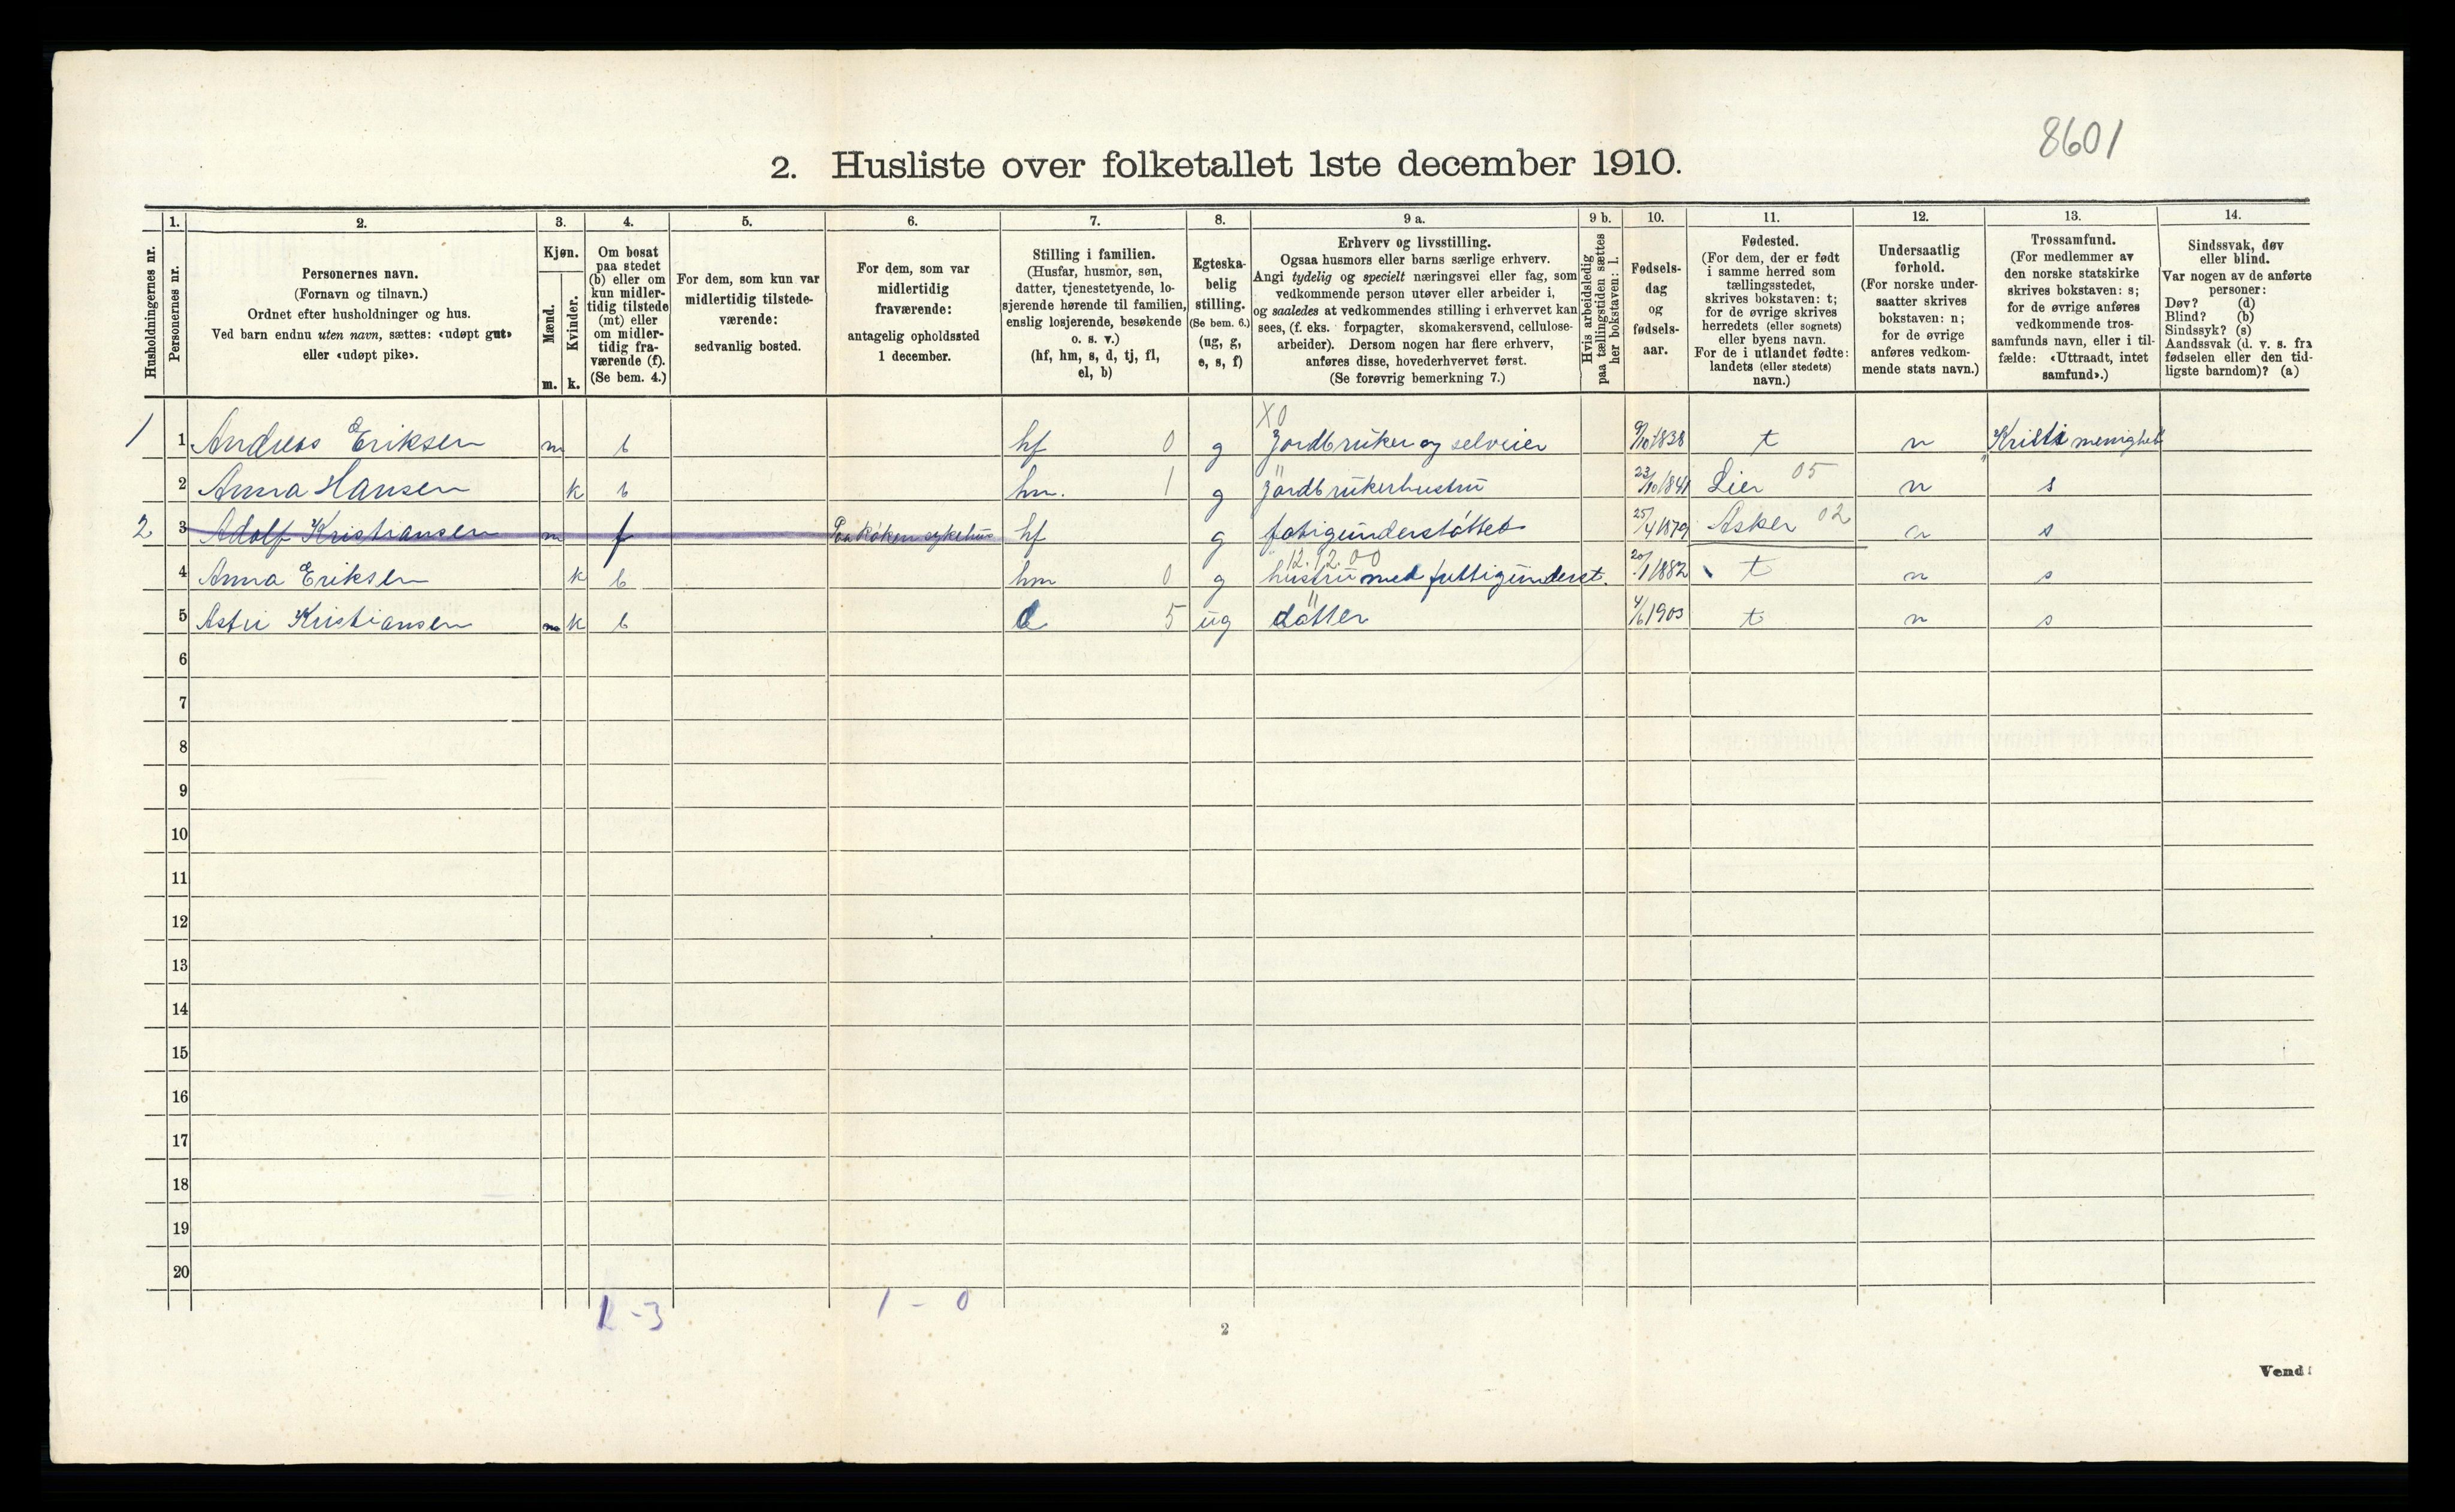 8601
2. Husliste over folketallet 1ste december 1910.
Husholdningernes nr.
1. Personernes nr.
2. Personernes navn.
(Fornavn og tilnavn.)
Ordnet efter husholdninger og hus.
Ved barn endnu uten navn, sættes: «udøpt gut»
eller «udøpt pike».
3. Kjøn.
Mænd. m.
Kvinder. k.
4. Om bosat
paa stedet
(b) eller om
kun midler-
tidig tilstede
(mt) eller
om midler-
tidig fra-
værende (f).
(Se bem. 4.)
5. For dem, som kun var
midlertidig tilstede-
værende:
sedvanlig bosted.
6. For dem, som var
midlertidig
fraværende:
antagelig opholdssted
1 december.
7. Stilling i familien.
(Husfar, husmor, søn,
datter, tjenestetyende, lo-
sjerende hørende til familien,
enslig losjerende, besøkende
o. s. v.)
(hf, hm, s, d, tj, fl,
el, b)
8. Egteska-
belig
stilling.
(Se bem. 6.)
(ug, g,
e, s, f)
9 a. Erhverv og livsstilling.
Ogsaa husmors eller barns særlige erhverv.
Angi tydelig og specielt næringsvei eller fag, som
vedkommende person utøver eller arbeider i,
og saaledes at vedkommendes stilling i erhvervet kan
sees, (f. eks. forpagter, skomakersvend, cellulose-
arbeider). Dersom nogen har flere erhverv,
anføres disse, hovederhvervet først.
(Se forøvrig bemerkning 7.)
9 b. Hvis arbeidsledig
paa tællingstiden sættes
her bokstaven: l.
10. Fødsels-
dag
og
fødsels-
aar.
11. Fødested.
(For dem, der er født
i samme herred som
tællingsstedet,
skrives bokstaven: t;
for de øvrige skrives
herredets (eller sognets)
eller byens navn.
For de i utlandet fødte:
landets (eller stedets)
navn.)
12. Undersaatlig
forhold.
(For norske under-
saatter skrives
bokstaven: n;
for de øvrige
anføres vedkom-
mende stats navn.)
13. Trossamfund.
(For medlemmer av
den norske statskirke
skrives bokstaven: s;
for de øvrige anføres
vedkommende tros-
samfunds navn, eller i til-
fælde: «Uttraadt, intet
samfund».)
14. Sindssvak, døv
eller blind.
Var nogen av de anførte
personer:
Døv? (d)
Blind? (b)
Sindssyk? (s)
Aandssvak (d. v. s. fra
fødselen eller den tid-
ligste barndom)? (a)
X0
1 1 Andreas Eriksen m b hf 0 g Jordbruker og selveier 9/10 1838 t n Kristi menighet
"
2 Anna Hansen k b hm. 1 g jordbrukerhustru 23/10 1841 Lier 05 n s
2 3 Adolf Kristiansen m f Paa Röken sykehus hf g fatigunderstöttet 25/4 1879 Asker 02 n s
12.12.00
4 Anna Eriksen k b hm 0 g hustru med fattigunderst. 20/1 1882 t n s
"
5 Astri Kristiansen k b d 5 ug datter 4/6 1903 t n s
6
7
8
9
10
11
12
13
14
15
16
17
18
19
20
1 - 0
2
Vend!